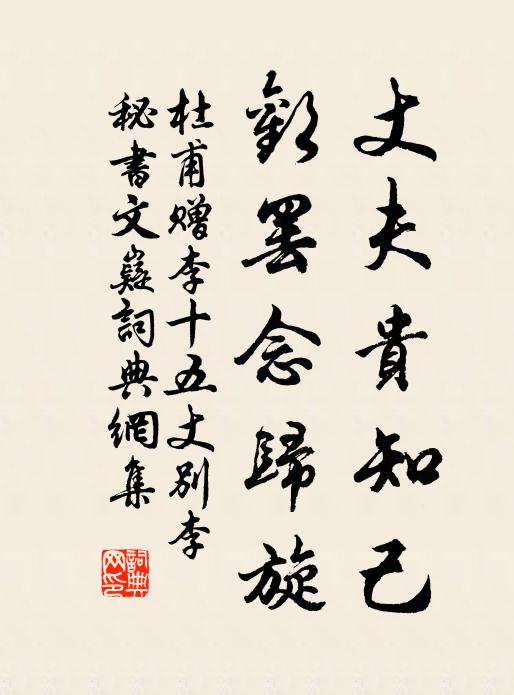 丈夫貴知己
歡罷念歸旋
杜甫贈李十五丈別李
秘書文嶷詞典網集
詞典网印